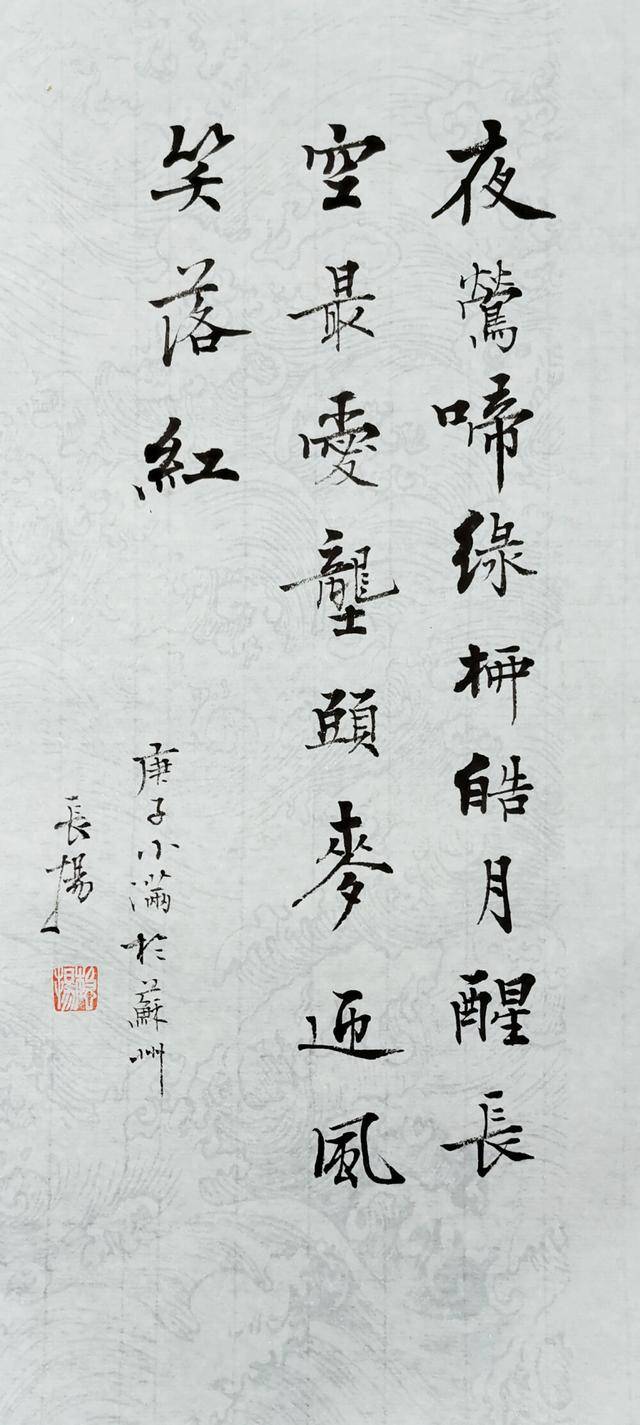 夜鶯啼綠柳皓月醒長
空最愛壟頭麥迎風
笑落紅
庚子小滿於蘇州
長楊